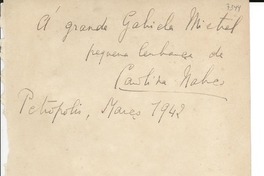 A' grande Gabriela Mistral
pequena lembrança de
Carolina Nabuco
Petrópolis, Março 1942